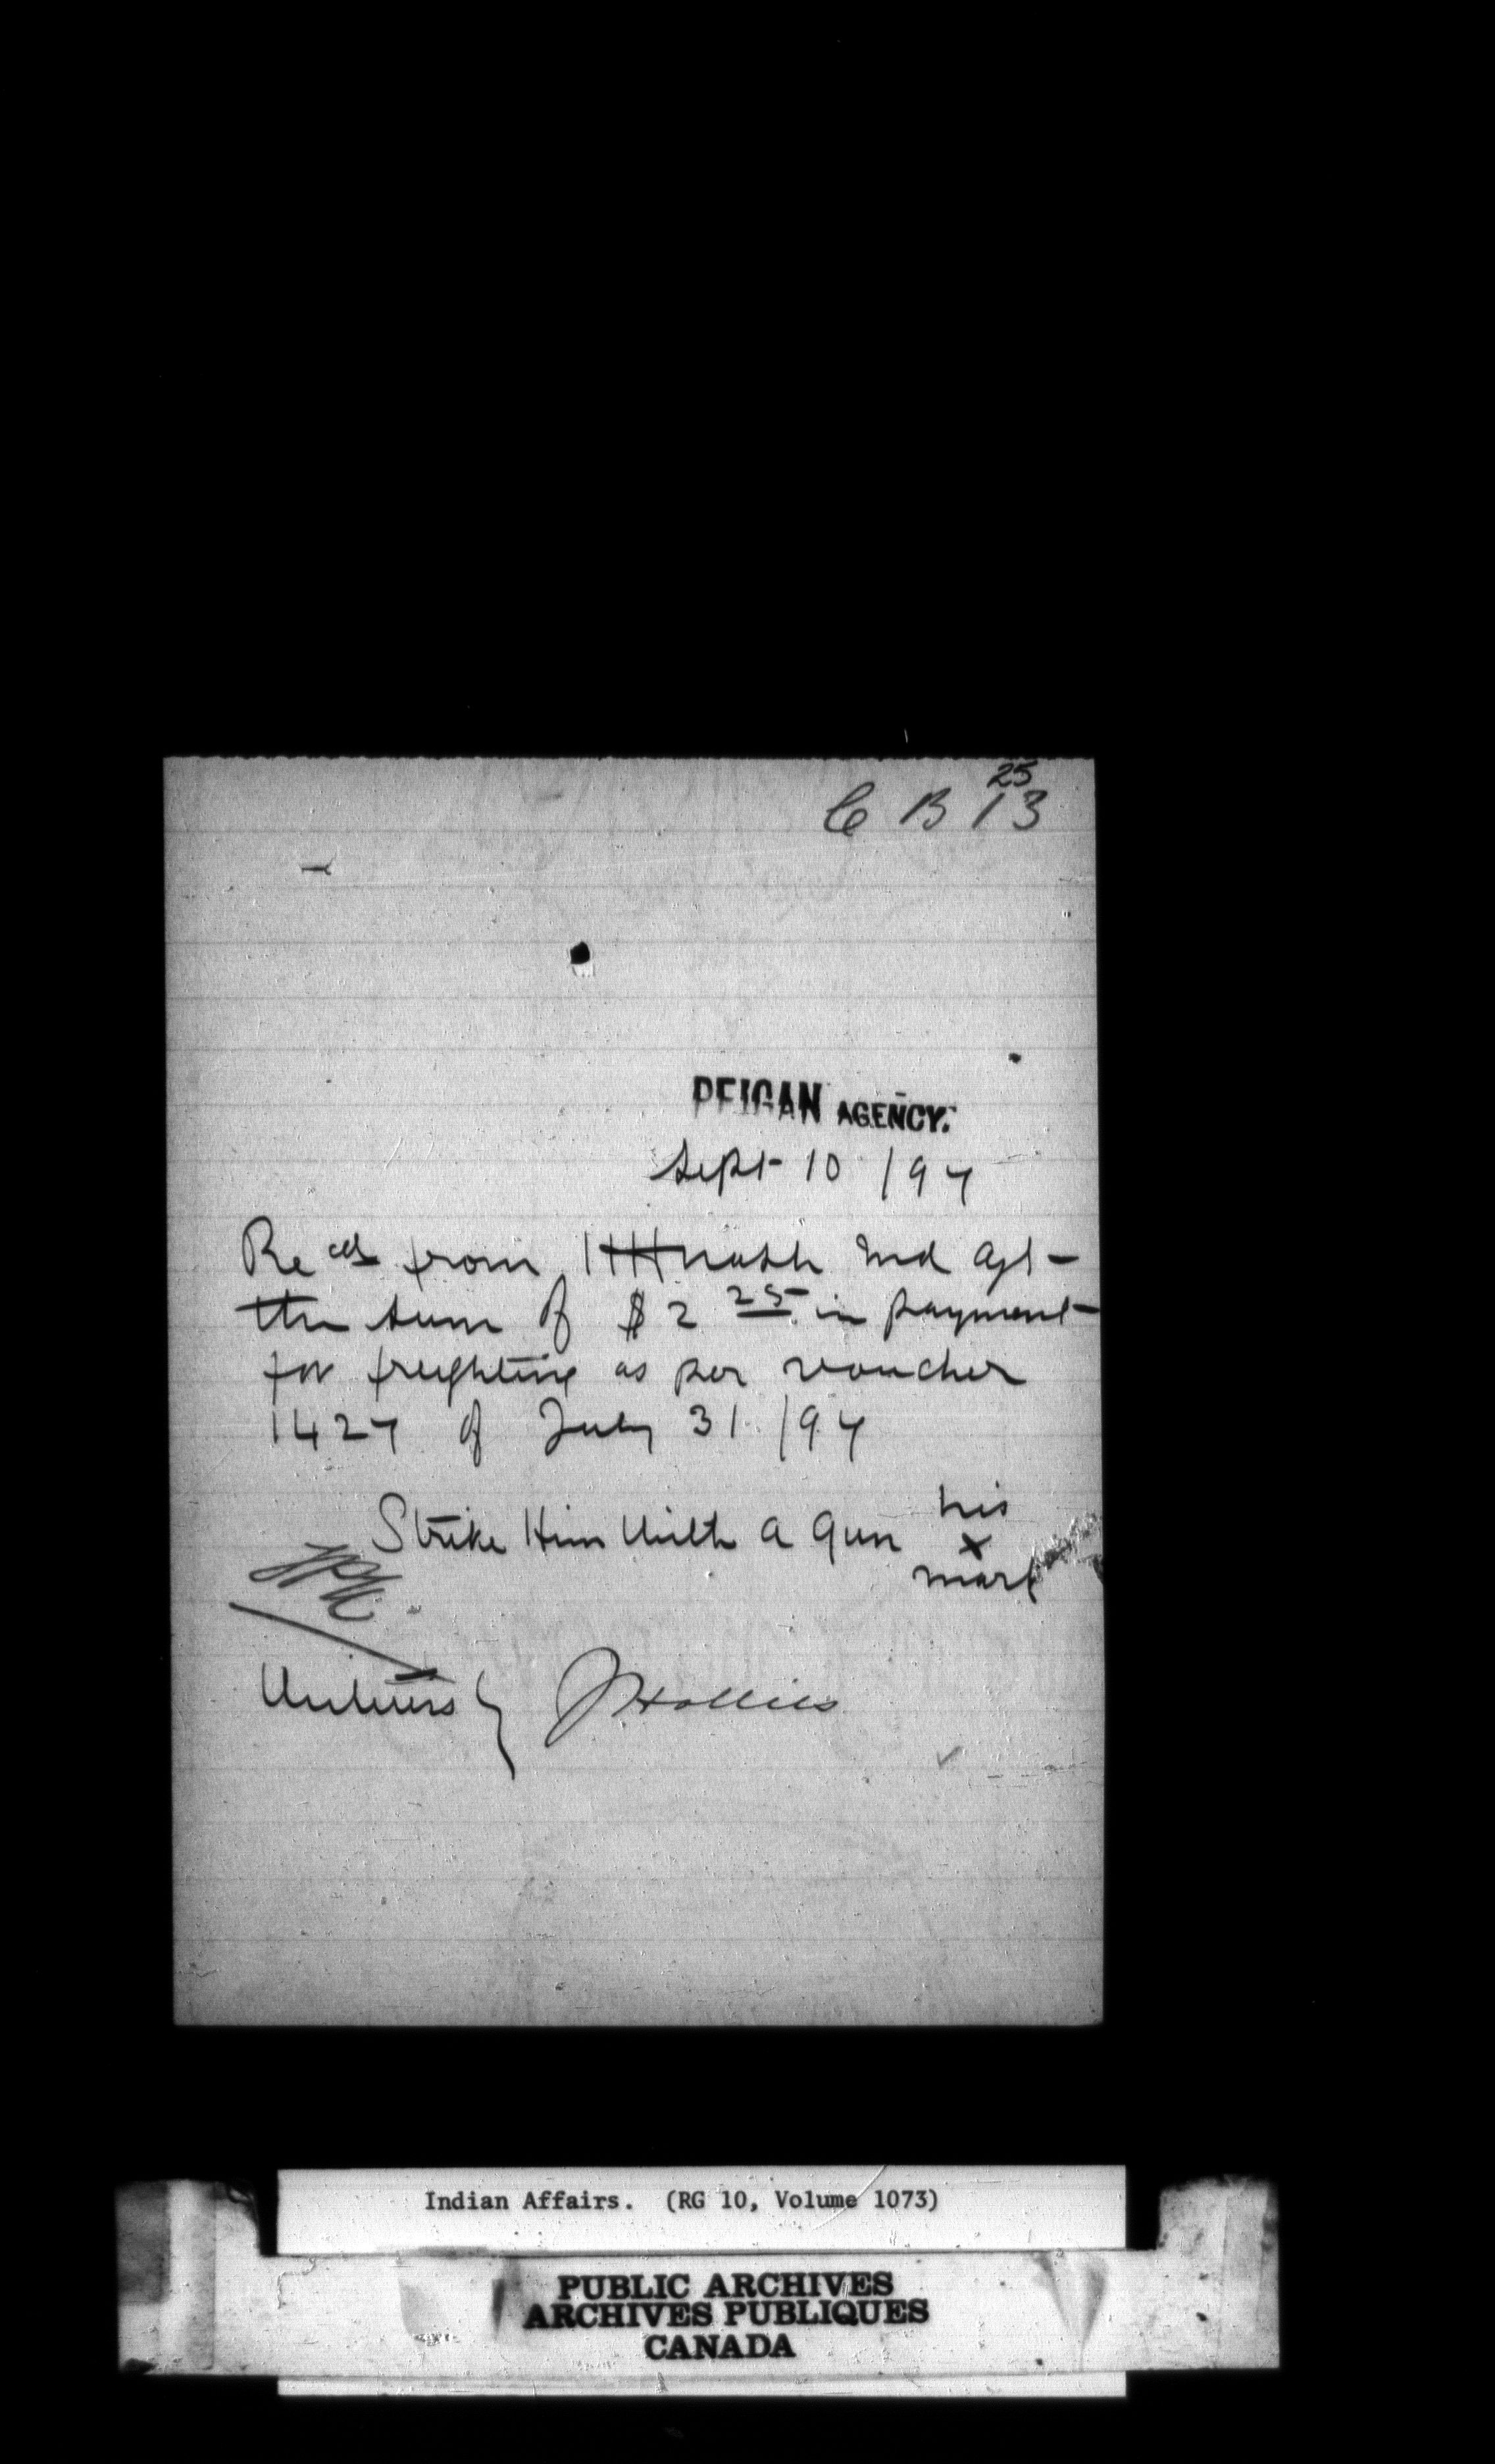 25
C B 13
PEIGAN AGENCY.
Sept 10 /97
Recd from HHNash Ind Agt
the sum of $2 25 in payment
for freighting as per voucher
1427 of July 31 /97
Strike Him With a Gun his
x
mark
Witness } Hollies
Indian Affairs. (RG 10, Volume 1073)
PUBLIC ARCHIVES
ARCHIVES PUBLIQUES
CANADA